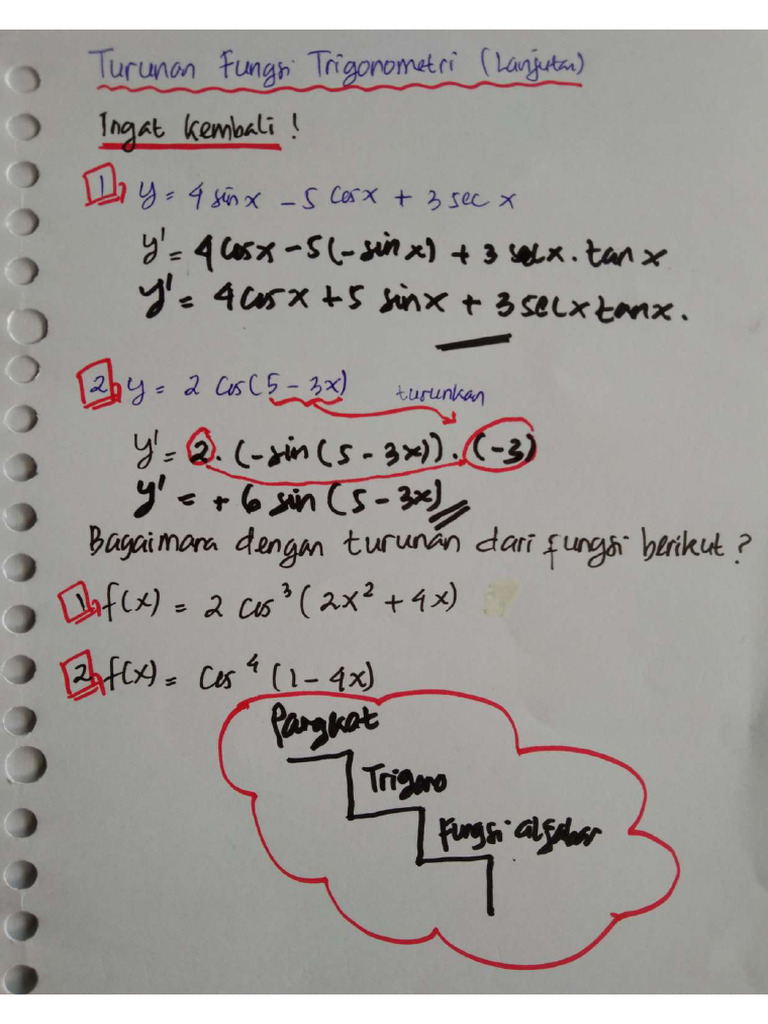 Turunan Fungsi Trigonometri (Lanjutan)
Ingat kembali!
1) y = 4 sin x - 5 cos x + 3 sec x
y' = 4 cos x - 5(-sin x) + 3 sec x . tan x
y' = 4 cos x + 5 sin x + 3 sec x tan x.
2) y = 2 cos(5 - 3x) turunkan
y' = 2 . (-sin(5 - 3x)) . (-3)
y' = + 6 sin (5 - 3x)
Bagaimana dengan turunan dari fungsi berikut?
1) f(x) = 2 cos³ (2x² + 4x)
2) f(x) = cos⁴ (1 - 4x)
Pangkat
Trigono
Fungsi aljabar